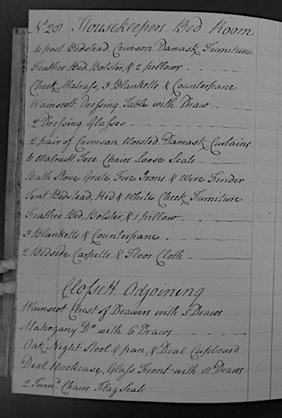 No 20 Housekeepers Bed Room
4 post Bedstead Crimson Damask Furniture
Feather Bed, Bolster, & 2 pillows
Check Matrass, 3 Blanketts & Counterpane
Wainscott Dressing Table with Draw
2 Dressing Glasses
2 pair of Crimson Worsted Damask Curtains
6 Walnutt Tree Chairs Loose Seats
Bath Stove Grate Fire Irons & Wire Fender
Tent Bedstead, Red & White Check Furniture
Feather Bed, Bolster, & 1 pillow
3 Blanketts & Counterpane
2 Bedside Carpetts & Floor Cloth
Clossett Adjoining
Wainscot Chest of Drawers with 5 Draws
Mahogany Do with 6 Draws
Oak Night Stool & pan, & Deal Cupboard
Deal Bookcase, Glass Front with Draws
2 Turnd Chairs Flag Seats